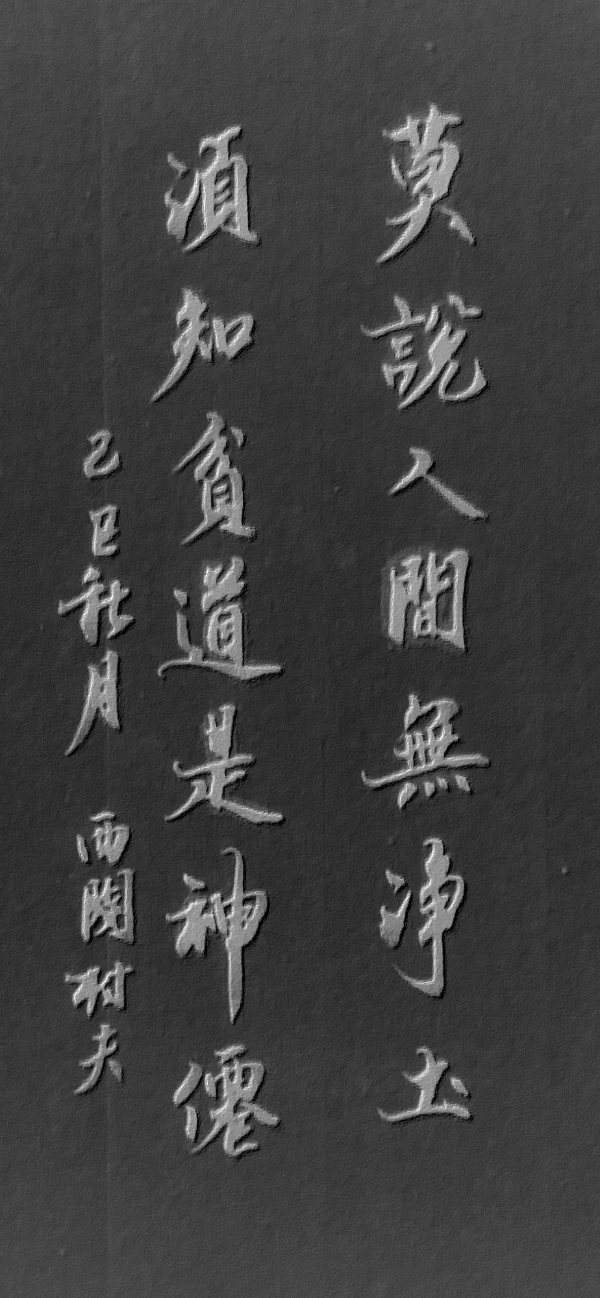 莫說人間無淨土
須知貧道是神僊
乙巳秋月 西陶村夫